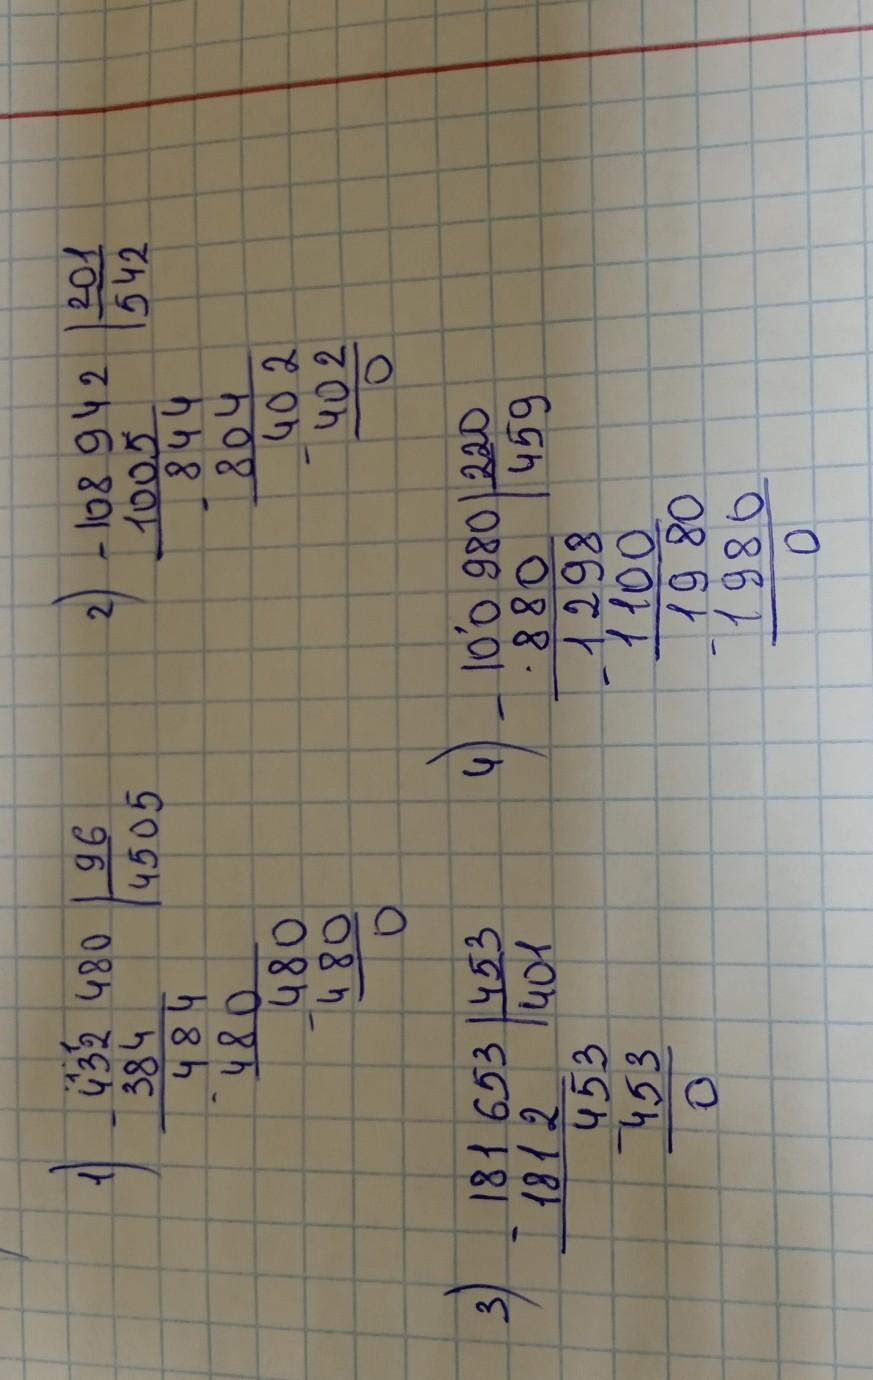 1) - 432 480 | 96
384 | 4505
484
- 480
480
- 480
0
2) - 108 942 | 201
1005 | 542
844
- 804
402
- 402
0
3) - 181 653 | 453
1812 | 401
453
- 453
0
4) - 100 980 | 220
880 | 459
1298
- 1100
1980
- 1980
0